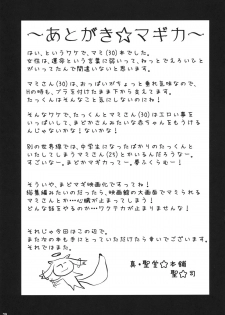 ～あとがき☆マギカ～
はい、というワケで、マミ(30)本でした。
女性は、運命という言葉に弱いって、ねっとでえろいひと
がいってたんで間違いないと思います。
マミさん(30)は、おっぱいがちょっと垂れ気味なので、
Hの時も、ブラを付けたまま下から支えてます。
たっくんはそんなこと気にしないのにね！
そんなワケで、たっくんとマミさん(30)はエロい事を
いっぱいして、まどかさんみたいな赤ちゃんをもうける
んじゃないかな！ないかな！
別の世界線では、中学生になったばかりのたっくんと
いたしてしまうマミさん(25)とかいるんだろうなー。
すごいなー、まどかマギカって…夢ふくらむー！
そういや、まどマギ映画化ですってね！
総集編みたいのだったら、映画館の大画面でマミられる
マミさんとか…心臓が止まってしまう！
どんな話をやるのか…ワクテカが止まりませんな！
それじゃ今回はこの辺で。
また次の本も手にとっていただけたら幸いでございます。
それではまた。
真・聖堂☆本舗
聖☆司